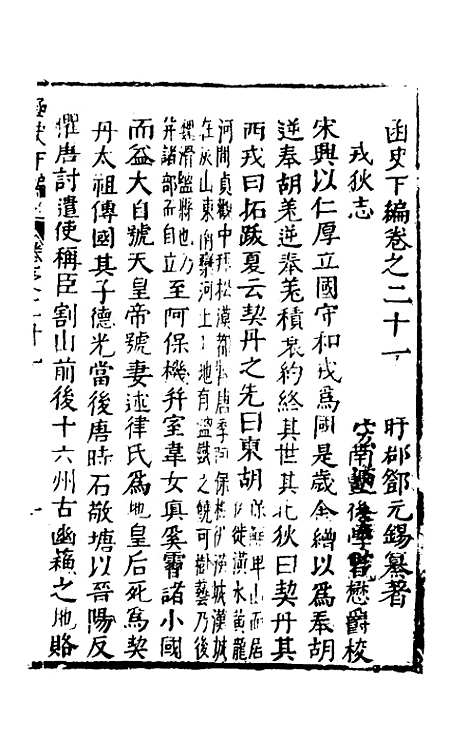 函史下編卷之二十一
盱郡鄧元錫纂著
戎狄志
南豐後學曾懋爵校
宋興以仁厚立國守和戎爲國是歲金繒以爲奉胡
逆奉胡羌逆奉羌積衰約終其世其北狄曰契丹其
西戎曰拓跋夏云契丹之先曰東胡保鮮卑山而居
徙潢水黄龍
河間貞觀中拜松漠都唐季阿保機漢城漢城
在灰山東南灤河上地有鹽鐵之饒可樹藝乃後
魏滑鹽縣也乃
并諸部而自立至阿保機并室韋女真奚霫諸小國
而益大自號天皇帝號妻述律氏爲地皇后死爲契
丹太祖傳國其子德光當後唐時石敬塘以晉陽反
懼唐討遣使稱臣割山前後十六州古幽薊之地賂
函史下編
卷之二十一
一